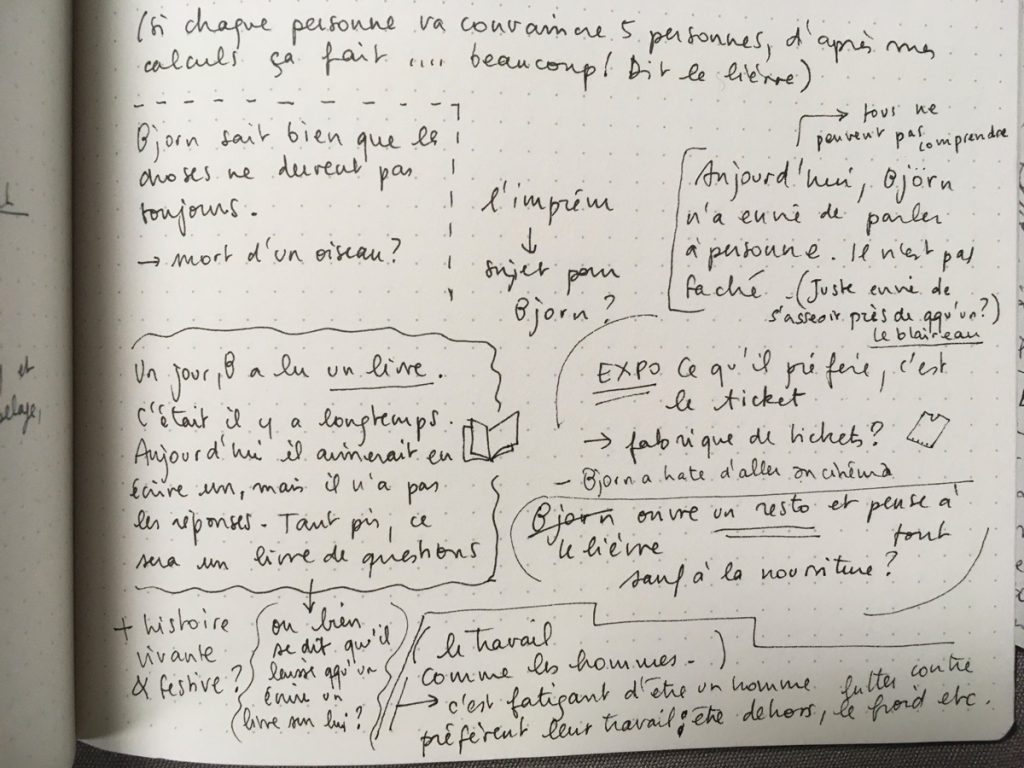 (Si chaque personne va convaincre 5 personnes, d'après mes
calculs ça fait .... beaucoup! Dit le lièvre)
Bjorn sait bien que les
choses ne durent pas
toujours.
→ mort d'un oiseau?
l'imprévu
↓
sujet pour
Bjorn?
→ tous ne
peuvent pas
comprendre
Aujourd'hui, Björn
n'a envie de parler
à personne. Il n'est pas
faché - (Juste envie de
s'asseoir près de qqu'un?)
le blaireau
Un jour, B a lu un livre.
C'était il y a longtemps.
Aujourd'hui il aimerait en
écrire un, mais il n'a pas
les réponses. Tant pis, ce
sera un livre de questions
EXPO Ce qu'il préfère, c'est
le ticket
→ fabrique de tickets?
- Bjorn a hate d'aller au cinéma
Bjorn ouvre un resto et pense à
le lièvre tout
sauf à la nourriture?
+ histoire
vivante
& festive?
ou bien
se dit qu'il
laisse qqu'un
écrire un
livre sur lui?
(le travail
comme les hommes. )
→ c'est fatigant d'être un homme
préfèrent leur travail: être dehors, lutter contre
le froid etc.